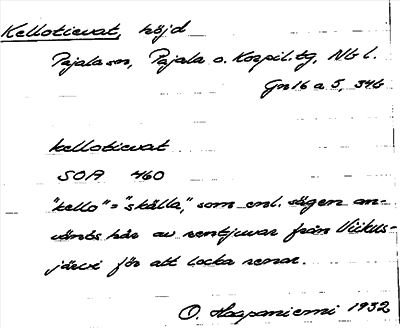 Kellotievat, höjd
Pajala sn, Pajala o. Korpil. tg, Nb l.
Gn 16 a 5, 346
kellotievat
SOA 460
"kello" = "skälla", som enl. sägen an-
vänts här av rentjuvar från Viikus-
järvi för att locka renar.
O. Haapaniemi 1932